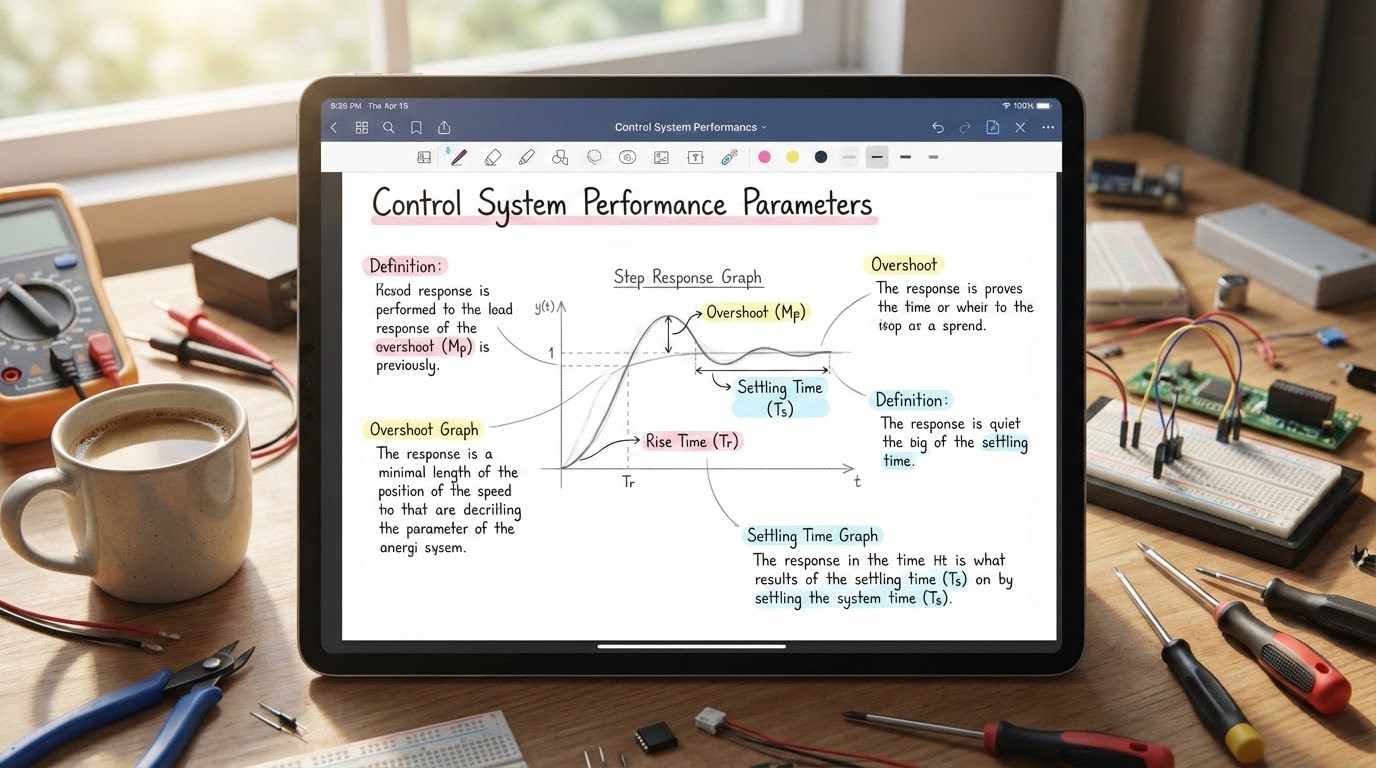 5:25 PM Thu Apr 15
100%
Control System Performancs
Control System Performance Parameters
Definition:
response is
performed to the lead
response of the
overshoot (Mp) is
previously.
Overshoot Graph
The response is a
minimal length of the
position of the speed
to that are decrilling
the parameter of the
anergi sysem.
Step Response Graph
y(t)
1
Overshoot (Mp)
Settling Time
(Ts)
Rise Time (Tr)
Tr
t
Overshoot
The response is proves
the time or wheir to the
as a sprend.
Definition:
The response is quiet
the big of the settling
time.
Settling Time Graph
The response in the time Ht is what
results of the settling time (Ts) on by
settling the system time (Ts).